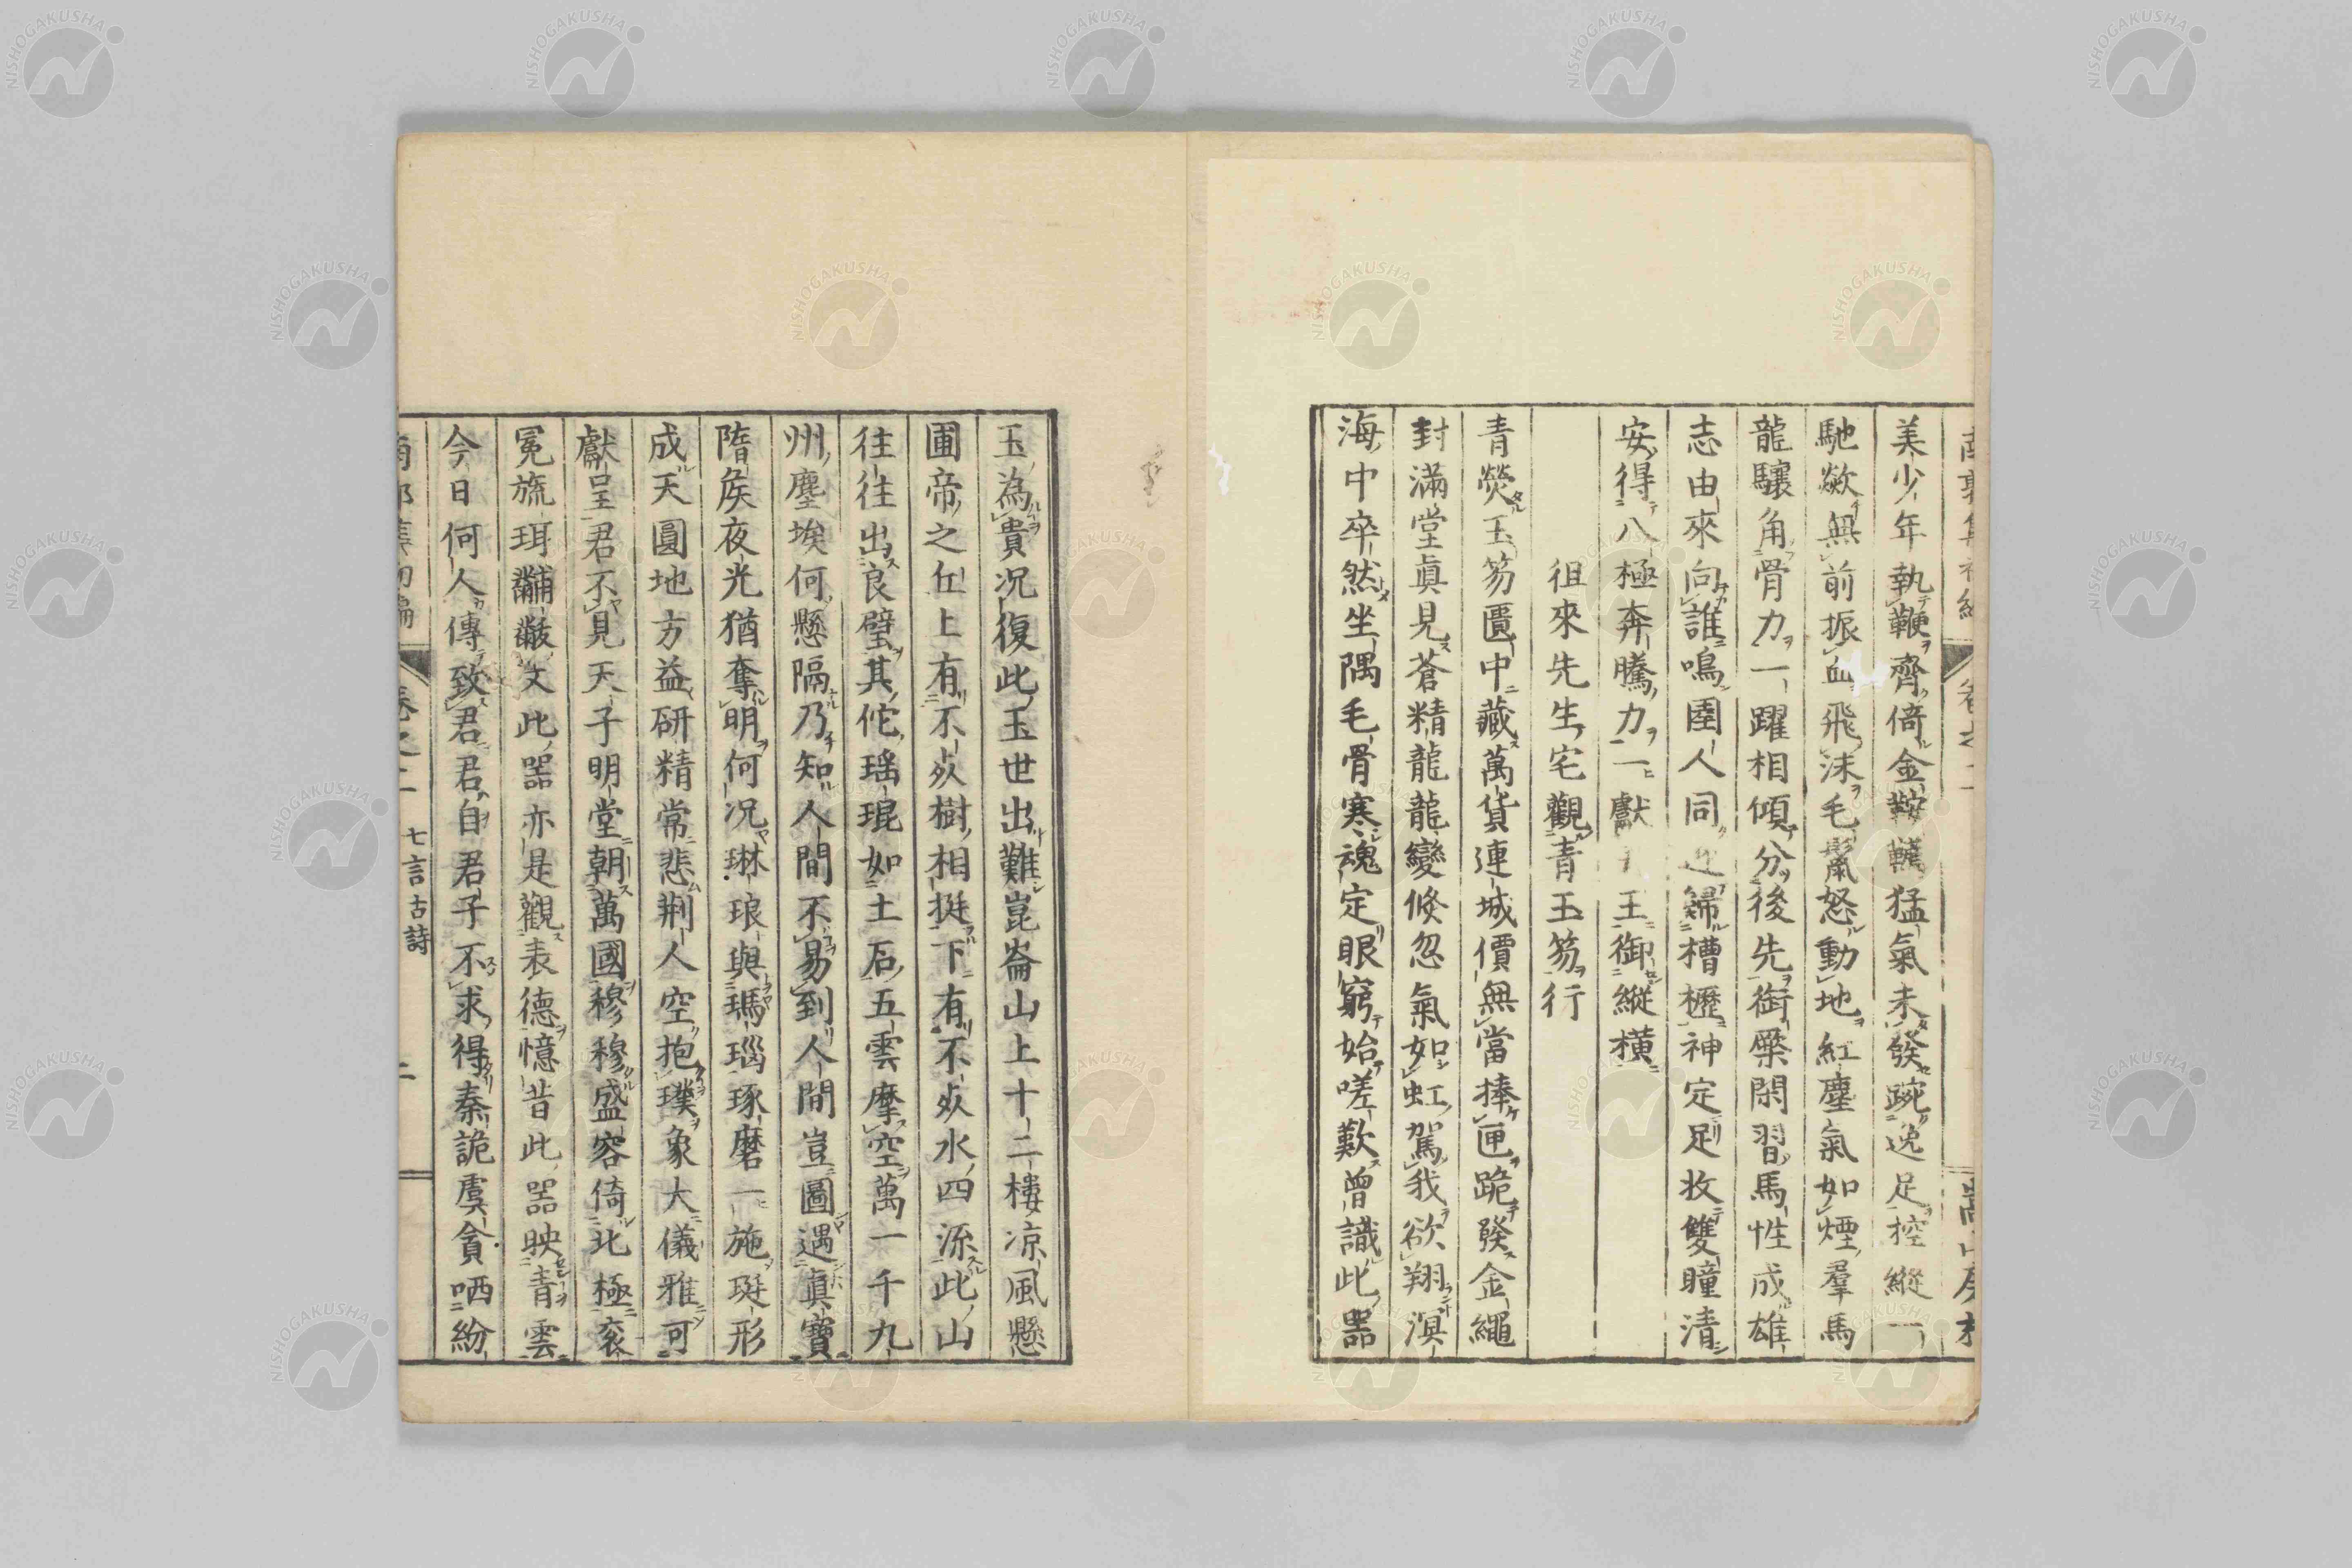 美少年執鞭齊倚金鞍韉猛氣未發踠逸足控縱一
馳歘無前振血飛沫毛鬣怒動地紅塵氣如煙羣馬
龍驤角骨力一躍相傾分後先銜橜閑習馬性成雄
志由來向誰鳴圉人同歸槽櫪神定足收雙瞳清
安得八極奔騰力一獻王御縱橫
徂來先生宅觀青玉笏行
青熒玉笏匱中藏萬貨連城價無當捧匣跪發金繩
封滿堂眞見蒼精龍龍變倏忽氣如虹駕我欲翔溟
海中卒然坐隅毛骨寒魂定眼窮始嗟歎曾識此器
玉為貴況復此玉世出難崑崙山上十二樓凉風懸
圃帝之丘上有不死樹相挻下有不死水四源此山
往往出良璧其佗瑶琨如土石五雲摩空萬一千九
州塵埃何懸隔乃知人間不易到人間豈圖遇眞寶
隋侯夜光猶奪明何況琳琅與瑪瑙琢磨一施珽形
成天圓地方益研精常悲荆人空抱璞象大儀雅可
獻呈君不見天子明堂朝萬國穆穆盛容倚北極袞
冕旒珥黼黻文此器亦是觀表德憶昔此器映青雲
今日何人傳致君君自君子不求得秦詭虞貪哂紛
七言古詩
二
NISHOGAKUSHA